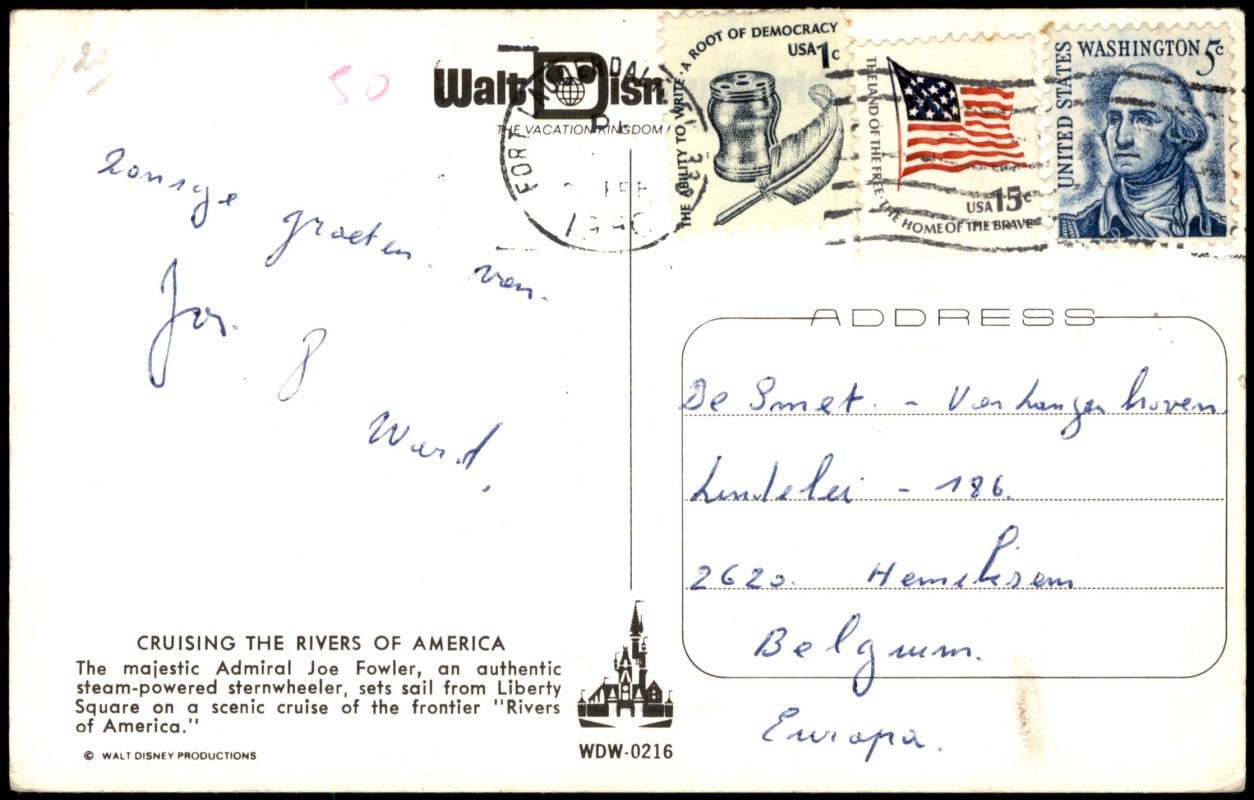 20
50
Walt Disn
THE VACATION KINGDOM
FORT
FEB
1980
THE ABILITY TO WRITE · A ROOT OF DEMOCRACY
USA 1c
THE LAND OF THE FREE · THE HOME OF THE BRAVE
USA 15c
UNITED STATES
WASHINGTON 5c
Zonnige
groeten van
Jos.
&
Ward.
ADDRESS
De Smet. - Van Langenhoven
Lindelei - 186.
2620. Hemiksem
Belgium.
Europa.
CRUISING THE RIVERS OF AMERICA
The majestic Admiral Joe Fowler, an authentic
steam-powered sternwheeler, sets sail from Liberty
Square on a scenic cruise of the frontier "Rivers
of America."
© WALT DISNEY PRODUCTIONS
WDW-0216